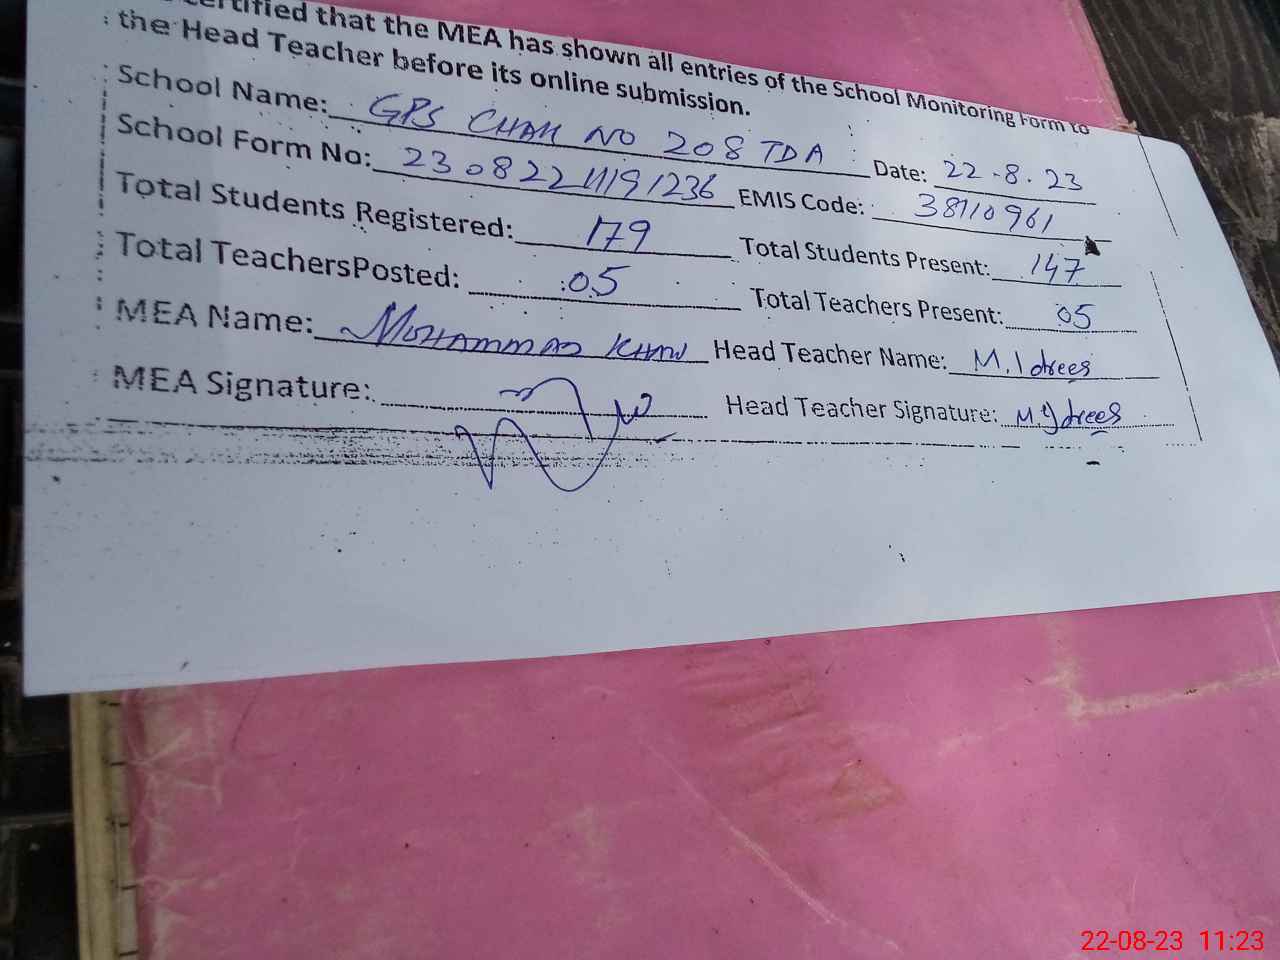 certified that the MEA has shown all entries of the School Monitoring Form to
the Head Teacher before its online submission.
School Name: GPS CHAK NO 208 TDA Date: 22-8.23
School Form No: 230822111191236 EMIS Code: 38110961
Total Students Registered: 179 Total Students Present: 147
Total TeachersPosted: 05 Total Teachers Present: 05
MEA Name: MOHAMMAD KHAN Head Teacher Name: M. Idrees
MEA Signature: Head Teacher Signature: M. Idrees
22-08-23 11:23